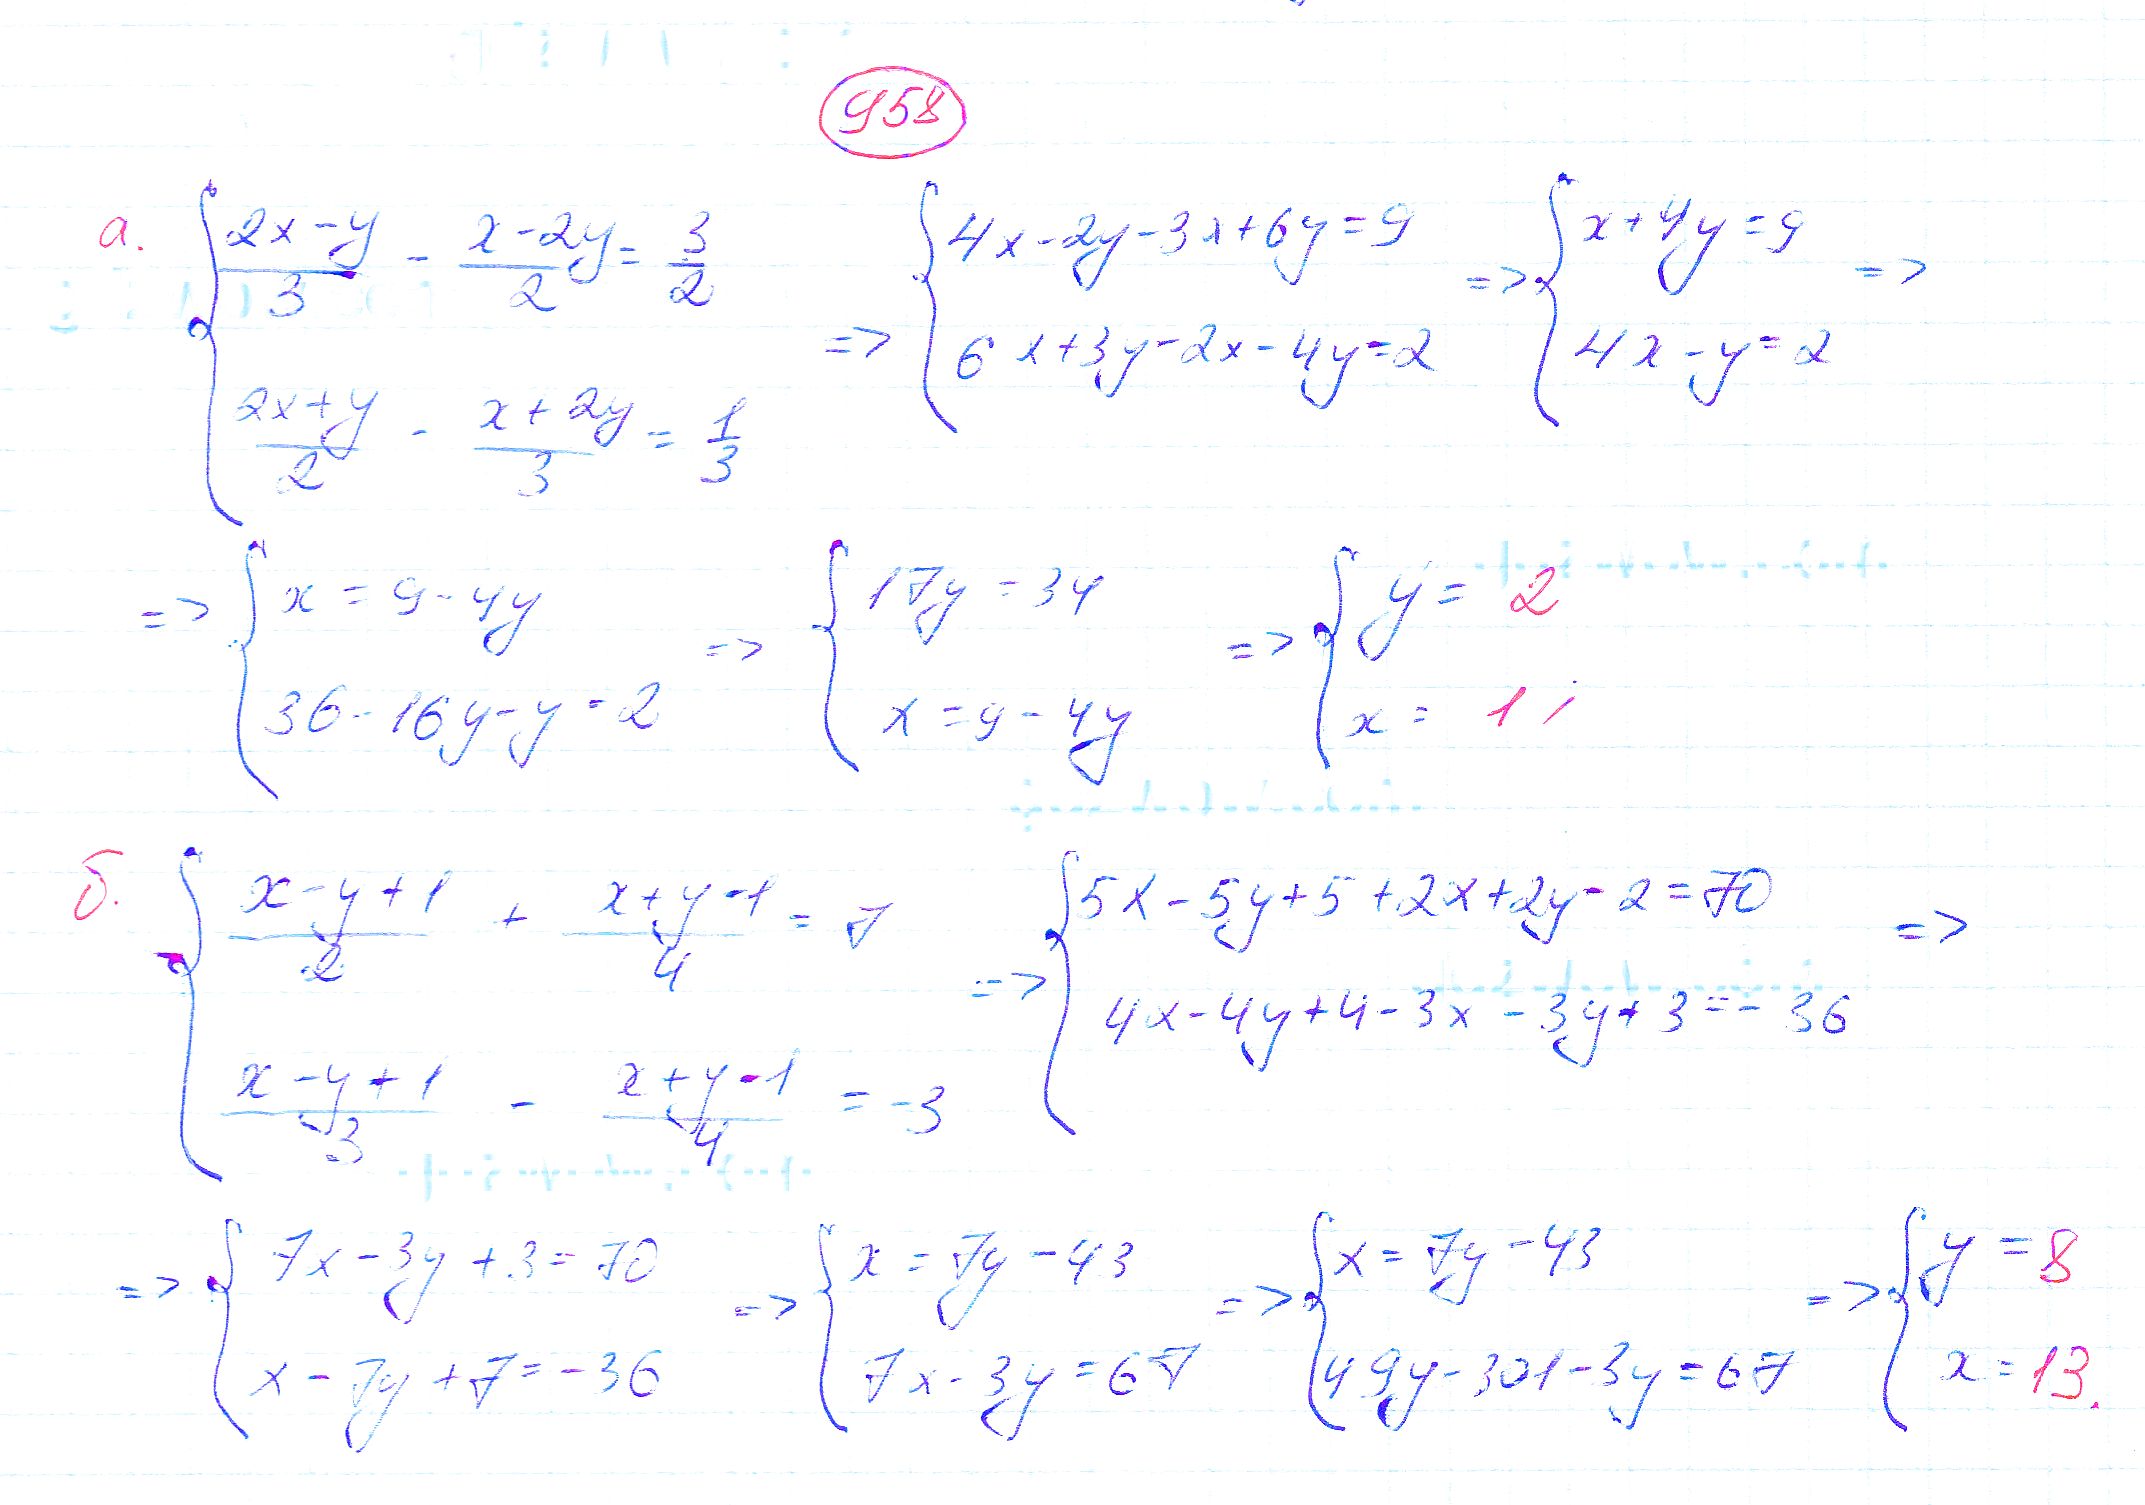 958
а. { (2x-y)/3 - (x-2y)/2 = 3/2 ; (2x+y)/2 - (x+2y)/3 = 1/3 => { 4x-2y-3x+6y=9 ; 6x+3y-2x-4y=2 => { x+4y=9 ; 4x-y=2 =>
=> { x=9-4y ; 36-16y-y=2 => { 17y=34 ; x=9-4y => { y=2 ; x=1;
б. { (x-y+1)/2 + (x+y-1)/4 = 7 ; (x-y+1)/3 - (x+y-1)/4 = -3 => { 5x-5y+5+2x+2y-2=70 ; 4x-4y+4-3x-3y+3=-36 =>
=> { 7x-3y+3=70 ; x-7y+7=-36 => { x=7y-43 ; 7x-3y=67 => { x=7y-43 ; 49y-301-3y=67 => { y=8 ; x=13.